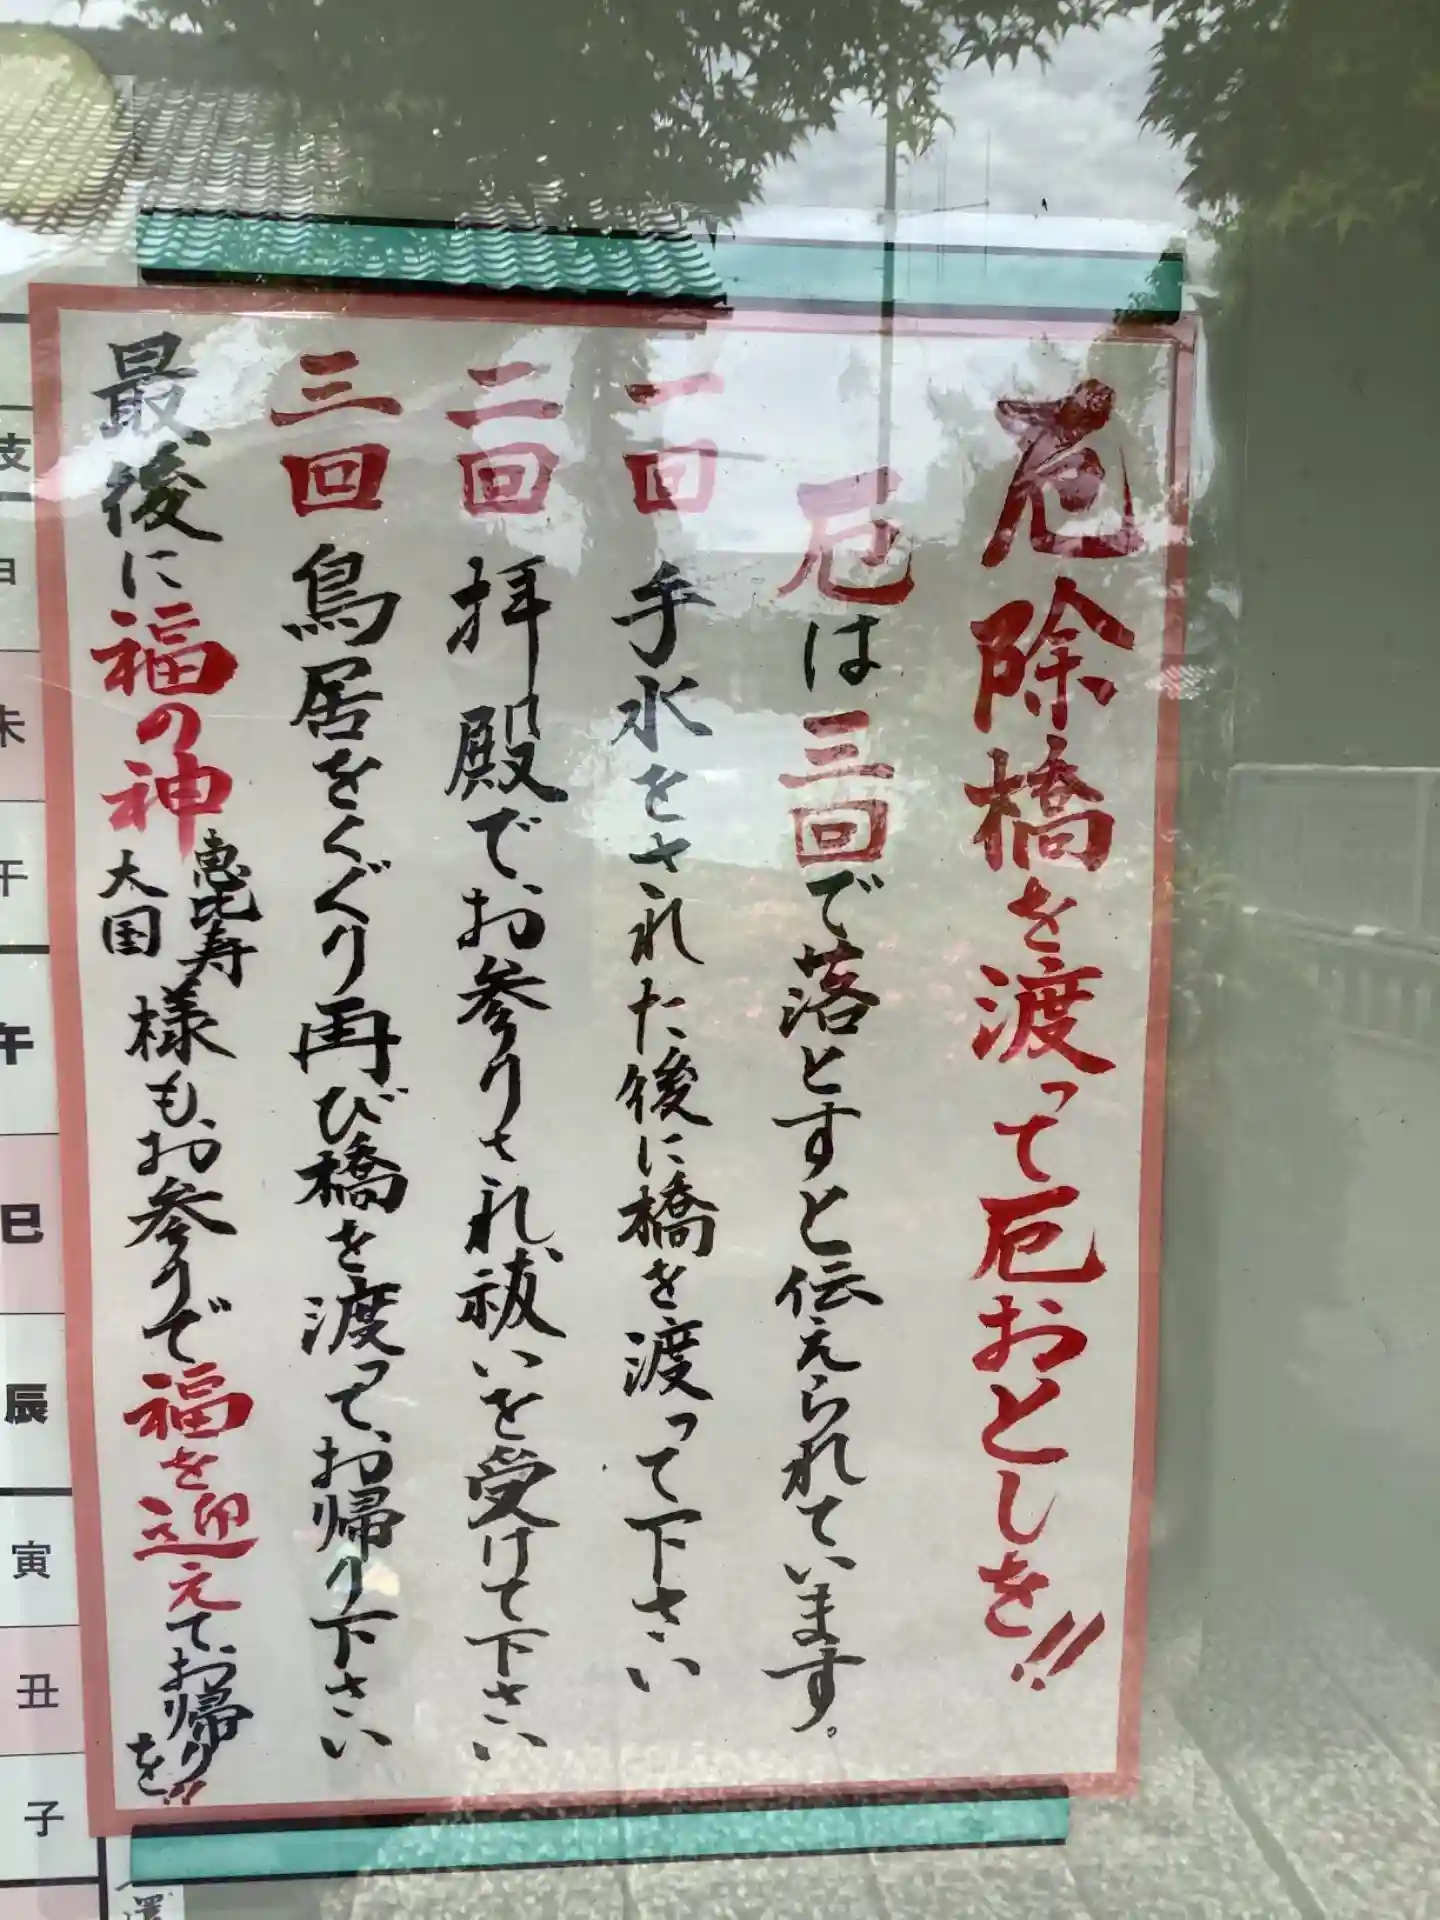 厄除橋を渡って厄おとしを!!
厄は三回で落とすと伝えられています。
一回 手水をされた後に橋を渡って下さい
二回 拝殿で、お参りされ、祓いを受けて下さい
三回 鳥居をくぐり再び橋を渡って、お帰り下さい
最後に福の神 恵比寿 大国 様も、お参りで福を迎えて、お帰りを!!
支
未
午
午
巳
辰
寅
丑
子